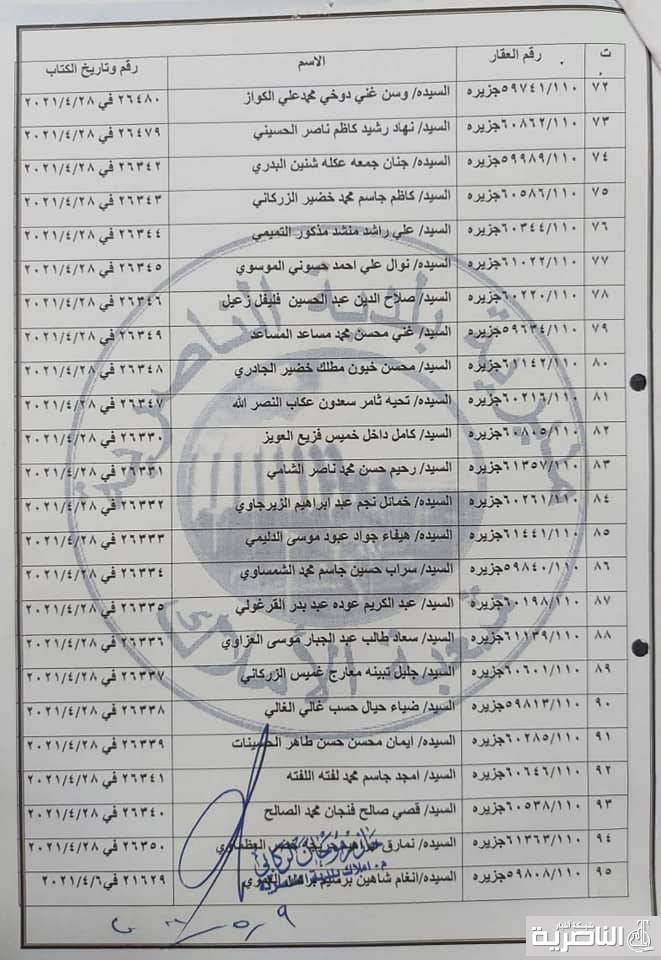 ت رقم العقار الاسم رقم وتاريخ الكتاب
٧٢ ٥٩٧٤١/١١٠جزيره السيده/ وسن غني دوخي محمدعلي الكواز ٢٦٤٨٠ في ٢٠٢١/٤/٢٨
٧٣ ٦٠٨٦٢/١١٠جزيره السيد/ نهاد رشيد كاظم ناصر الحسيني ٢٦٤٧٩ في ٢٠٢١/٤/٢٨
٧٤ ٥٩٩٨٩/١١٠جزيره السيده/ جنان جمعه عكله شنين البدري ٢٦٣٤٢ في ٢٠٢١/٤/٢٨
٧٥ ٦٠٥٨٦/١١٠جزيره السيد/ كاظم جاسم محمد خضير الزركاني ٢٦٣٤٣ في ٢٠٢١/٤/٢٨
٧٦ ٦٠٣٤٤/١١٠جزيره السيد/ علي راشد منشد مذكور التميمي ٢٦٣٤٤ في ٢٠٢١/٤/٢٨
٧٧ ٦١٠٢٢/١١٠جزيره السيده/ نوال علي احمد حسوني الموسوي ٢٦٣٤٥ في ٢٠٢١/٤/٢٨
٧٨ ٦٠٢٢٠/١١٠جزيره السيد/ صلاح الدين عبد الحسين فليفل زعيل ٢٦٣٤٦ في ٢٠٢١/٤/٢٨
٧٩ ٥٩٦٣٤/١١٠جزيره السيد/ غني محسن محمد مساعد المساعد ٢٦٣٤٩ في ٢٠٢١/٤/٢٨
٨٠ ٦١١٤٢/١١٠جزيره السيد/ محسن خيون مطلك خضير الجادري ٢٦٣٤٨ في ٢٠٢١/٤/٢٨
٨١ ٦٠٢١٦/١١٠جزيره السيده/ تحيه ثامر سعدون عكاب النصر الله ٢٦٣٤٧ في ٢٠٢١/٤/٢٨
٨٢ ٦٠٨٠٥/١١٠جزيره السيد/ كامل داخل خميس فزيع العويز ٢٦٣٣٠ في ٢٠٢١/٤/٢٨
٨٣ ٦١٣٥٧/١١٠جزيره السيد/ رحيم حسن محمد ناصر الشامي ٢٦٣٣١ في ٢٠٢١/٤/٢٨
٨٤ ٦٠٢٦١/١١٠جزيره السيده/ خمائل نجم عبد ابراهيم الزيرجاوي ٢٦٣٣٢ في ٢٠٢١/٤/٢٨
٨٥ ٦١٤٤١/١١٠جزيره السيده/ هيفاء جواد عبود موسى الدليمي ٢٦٣٣٣ في ٢٠٢١/٤/٢٨
٨٦ ٥٩٨٤٠/١١٠جزيره السيده/ سراب حسين جاسم محمد الشمساوي ٢٦٣٣٤ في ٢٠٢١/٤/٢٨
٨٧ ٦٠١٩٨/١١٠جزيره السيد/ عبد الكريم عوده عبد بدر القرغولي ٢٦٣٣٥ في ٢٠٢١/٤/٢٨
٨٨ ٦١١٣٩/١١٠جزيره السيده/ سعاد طالب عبد الجبار موسى العزاوي ٢٦٣٣٦ في ٢٠٢١/٤/٢٨
٨٩ ٦٠٦٠١/١١٠جزيره السيد/ جليل تبينه معارج غميس الزركاني ٢٦٣٣٧ في ٢٠٢١/٤/٢٨
٩٠ ٥٩٨١٣/١١٠جزيره السيد/ ضياء حيال حسب غالي الغالي ٢٦٣٣٨ في ٢٠٢١/٤/٢٨
٩١ ٦٠٢٨٥/١١٠جزيره السيده/ ايمان محسن حسن طاهر الحسينات ٢٦٣٣٩ في ٢٠٢١/٤/٢٨
٩٢ ٦٠٦٤٦/١١٠جزيره السيد/ امجد جاسم محمد لفته اللفته ٢٦٣٤١ في ٢٠٢١/٤/٢٨
٩٣ ٦٠٥٣٨/١١٠جزيره السيد/ قصي صالح فنجان محمد الصالح ٢٦٣٤٠ في ٢٠٢١/٤/٢٨
٩٤ ٦١٣٦٣/١١٠جزيره السيده/ نمارق ٢٦٣٥٠ في ٢٠٢١/٤/٢٨
٩٥ ٥٩٨٠٨/١١٠جزيره السيده/انغام شاهين ٢١٦٢٩ في ٢٠٢١/٤/٦
مديرية بلدية الناصرية
شعبة الأملاك
شبكة اخبار
الناصرية